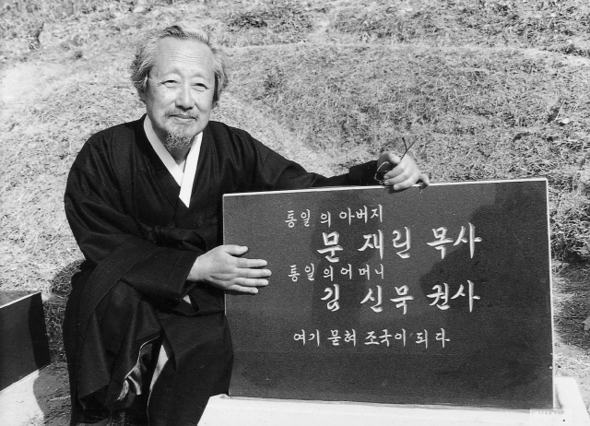 통일의 아버지
문재린 목사
통일의 어머니
김신묵 권사
여기 묻혀 조국이 되다